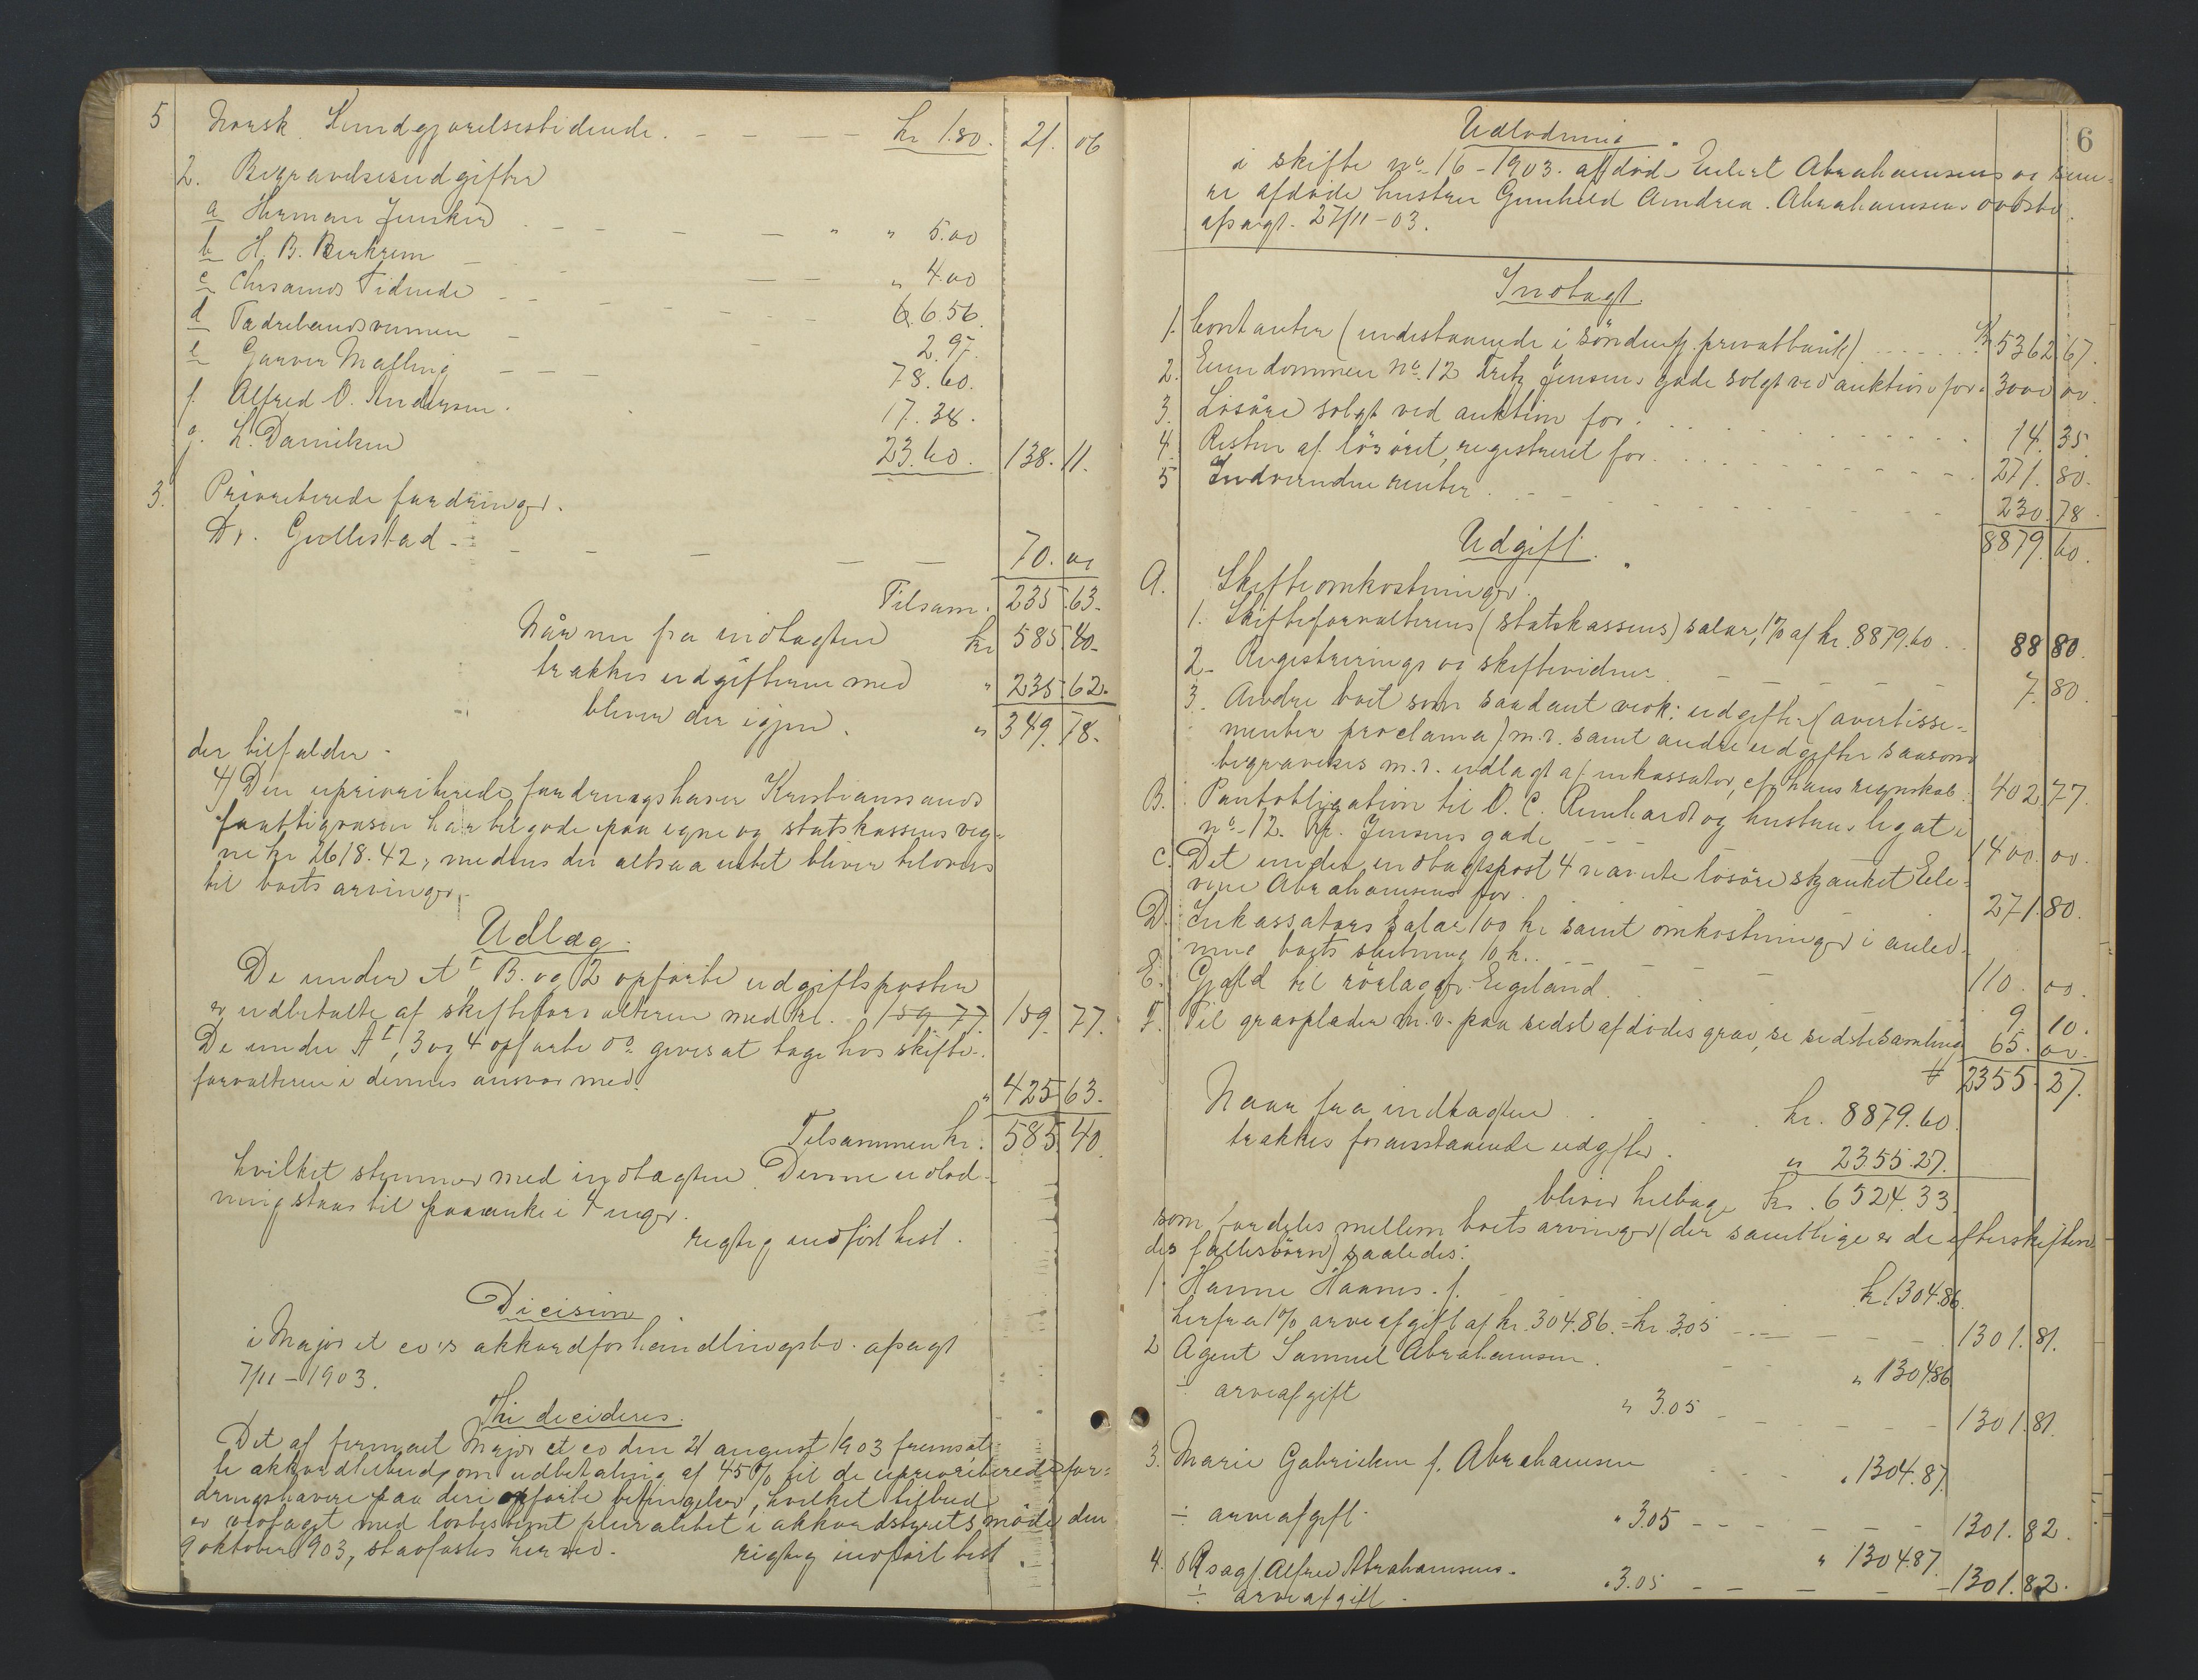 5 Norsk Kundgjørelsestidende. - - - - kr 1.80. 21. 06
2. Begravelsesudgifter
a Herman Junker - - - - " " 5.00
b H. B. Birkrem - - - - " 4.00
c Chrsands Tidende - - - - 6.56.
d Tædrelandsvennen - - 2.97.
e Garver Mafling - - - 78.60.
f. Alfred O. Andersen. 17.38.
g. L. Daniksen 23.60. 138. 11.
3. Prioriterede fordringer.
Dr. Gullestad - - - - - 70. 00
Tilsam. 235. 63.
Når nu fra indtægten kr 585. 40.
trækkes udgifterne med " 235. 62.
bliver der igjen. " 349. 78.
der tilfalder
4) Den uprioriterede fordringshaver Kristianssands
fattigvæsen har tilgode paa egne og statskassens veg=
ne kr 2618.42, medens der altsaa intet bliver tilovers
til boets arvinger.
Udlæg.
De under A I B. og 2 opførte udgiftsposter
er udbetalte af skifteforvalteren med kr. 159.77. 159. 77.
De under A I, 3 og 4 opførte do gives at tage hos skifte-
forvalteren i dennes ansvar med. " 425 63.
Tilsammen kr. 585. 40.
hvilket stemmer med indtægten. Denne udlod-
ning staar til paaanke i 4 uger.
rigtig indført test.
Decision
i Major et co's akkordforhandlingsbo. afsagt
7/11 - 1903.
Thi decideres.
Det af firmaet Major et co den 21 august 1903 fremsat-
te akkordtilbud om udbetaling af 45 % til de uprioriterede for=
dringshavere paa deri opførte betingelser, hvilket tilbud
er vedtaget med lovbestemt pluralitet i akkordstyrets møde den
9 oktober 1903, stadfæstes herved. rigtig indført test.
6
Udlodning
i skifte no 16 - 1903. afdød Eilert Abrahamsens og sene-
re afdøde hustru Gunhild Andrea Abrahamsens dødsbo.
afsagt. 27/11 - 03.
Indtægt.
1. Contanter (indestaaende i Søndenfj. privatbank) . . . . . . Kr 5362 67.
2. Eiendommen No. 12 Fritz Jensens gade solgt ved auktion for " 3000 00.
3. Løsøre solgt ved auktion for . . . . . . . . . . 14. 35.
4. Resten af løsøret, registreret for . . . . . . . . . 271. 80.
5 Indvundne renter . - - - - - - - - - 230. 78.
8879. 60.
Udgift.
A. Skifteomkostninger.
1. Skifteforvalterens (statskassens) salær, 1% af kr. 8879.60 . . 88 80.
2. Registrerings og skiftevidner . - - - - - 7. 80.
3. Andre boet som saadant vedk. udgifter (avertisse=
menter proclama) m.v. samt andre udgifter saasom
begravelses m.v. udlagt af inkassator, efter hans regnskab. 402. 77.
B. Pantobligation til O. C. Reinhardt og hustrus legat i
no 12. Fr. Jensens gade - - - 1400. 00.
C. Det under indtægtspost 4 nævnte løsøre skjænket Ele-
vine Abrahamsens for 271. 80.
D. Inkassators salær 100 kr samt omkostninger i anled-
ning boets slutning 10 kr. - - - 110. 00.
E. Gjæld til rørlægger Eigeland . . - - - 9 10.
F. Til gravplader m.v. paa sidst afdødes grav, se sidste samling 65. 00.
2355. 27.
Naar fra indtægten . . kr. 8879.60.
trækkes foranstaaende udgifter . " 2355.27.
bliver tilbage kr. 6524.33.
som fordeles mellem boets arvinger (der samtlige er de efterskiften-
des fællesbørn) saaledes:
1. Hanne Haanes. f. - k. 1304.86.
herfra 1% arveafgift af kr. 304.86. = kr. 3.05 - - - - - 1301. 81.
2 Agent Samuel Abrahamsen. - - " 1304.86
÷ arveafgift " 3.05 - - - - - 1301. 81.
3. Marie Gabrielsen f. Abrahamsen " 1304.87.
÷ arveafgift. " 3.05 - - - - - 1301. 82.
4. O.R.sagf. Alfred Abrahamsens. " 1304.87.
÷ arveafgift. " 3.05 - - - - 1301. 82.